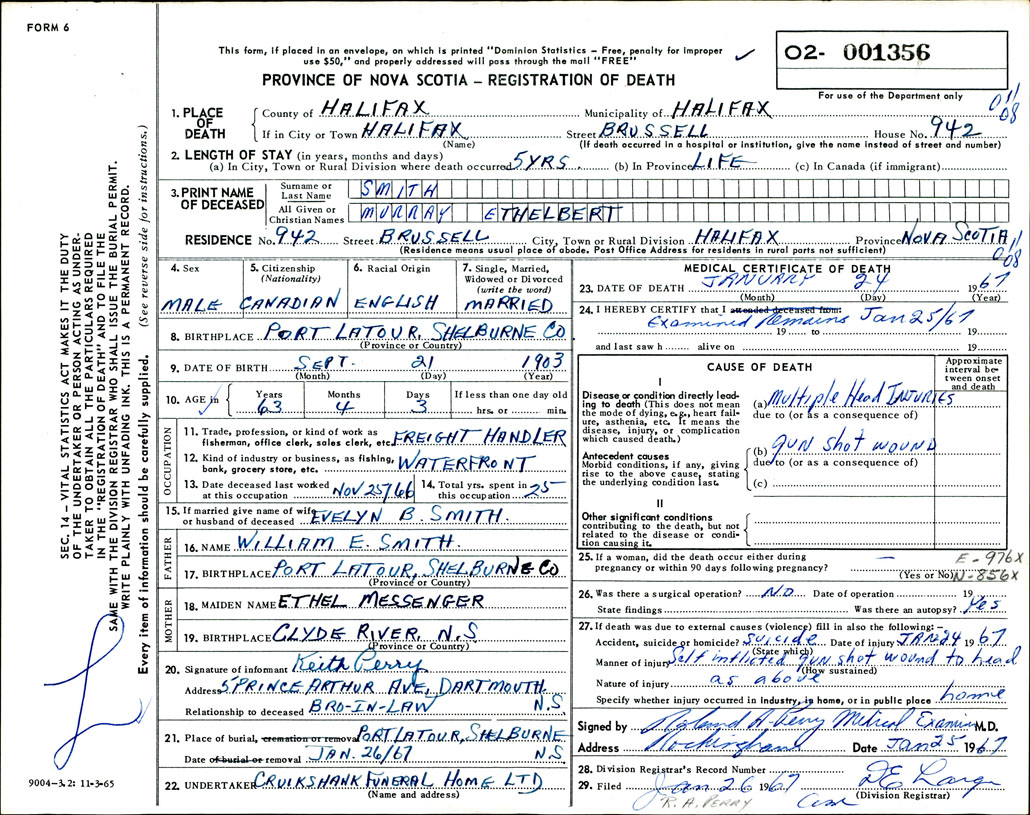 FORM 6
This form, if placed in an envelope, on which is printed "Dominion Statistics – Free, penalty for improper
use $50," and properly addressed will pass through the mail "FREE"
O2- 001356
For use of the Department only
PROVINCE OF NOVA SCOTIA – REGISTRATION OF DEATH
011
08
1. PLACE OF DEATH
County of HALIFAX Municipality of HALIFAX
If in City or Town HALIFAX Street BRUSSELL House No. 942
(Name) (If death occurred in a hospital or institution, give the name instead of street and number)
2. LENGTH OF STAY (in years, months and days)
(a) In City, Town or Rural Division where death occurred 5 YRS. (b) In Province LIFE (c) In Canada (if immigrant)
3. PRINT NAME OF DECEASED
Surname or Last Name SMITH
All Given or Christian Names MURRAY ETHELBERT
RESIDENCE No. 942 Street BRUSSELL City, Town or Rural Division HALIFAX Province NOVA SCOTIA
(Residence means usual place of abode. Post Office Address for residents in rural parts not sufficient)
011
08
4. Sex
MALE
5. Citizenship (Nationality)
CANADIAN
6. Racial Origin
ENGLISH
7. Single, Married, Widowed or Divorced (write the word)
MARRIED
8. BIRTHPLACE PORT LATOUR, SHELBURNE CO
(Province or Country)
9. DATE OF BIRTH SEPT. 21 1903
(Month) (Day) (Year)
10. AGE in Years Months Days If less than one day old
63 4 3 hrs. or min.
OCCUPATION
11. Trade, profession, or kind of work as
fisherman, office clerk, sales clerk, etc. FREIGHT HANDLER
12. Kind of industry or business, as fishing,
bank, grocery store, etc. WATERFRONT
13. Date deceased last worked
at this occupation NOV 25/66
14. Total yrs. spent in
this occupation 25
15. If married give name of wife
or husband of deceased EVELYN B. SMITH.
FATHER
16. NAME WILLIAM E. SMITH.
17. BIRTHPLACE PORT LATOUR, SHELBURNE CO
(Province or Country)
MOTHER
18. MAIDEN NAME ETHEL MESSENGER
19. BIRTHPLACE CLYDE RIVER, N.S
(Province or Country)
20. Signature of informant Keith Perry
Address 5 PRINCE ARTHUR AVE, DARTMOUTH
Relationship to deceased BRO-IN-LAW N.S
21. Place of burial, cremation or removal PORT LATOUR, SHELBURNE
Date of burial or removal JAN. 26/67 N.S
22. UNDERTAKER CRUIKSHANK FUNERAL HOME LTD
(Name and address)
MEDICAL CERTIFICATE OF DEATH
23. DATE OF DEATH JANUARY 24 1967
(Month) (Day) (Year)
24. I HEREBY CERTIFY that I attended deceased from:
Examined Remains Jan 25/67
19 to 19
and last saw h alive on 19
CAUSE OF DEATH
Approximate interval between onset and death
I
Disease or condition directly leading to death (This does not mean
the mode of dying, e.g., heart failure, asthenia, etc. It means the
disease, injury, or complication
which caused death.)
(a) Multiple Head INJURIES
due to (or as a consequence of)
Antecedent causes
Morbid conditions, if any, giving
rise to the above cause, stating
the underlying condition last.
(b) gun shot wound
due to (or as a consequence of)
(c)
II
Other significant conditions
contributing to the death, but not
related to the disease or condition causing it.
25. If a woman, did the death occur either during
pregnancy or within 90 days following pregnancy? —
(Yes or No)
E-976X
N-856X
26. Was there a surgical operation? NO Date of operation 19
State findings Was there an autopsy? Yes
27. If death was due to external causes (violence) fill in also the following:–
Accident, suicide or homicide? Suicide Date of injury JAN 24 1967
(State which)
Manner of injury Self inflicted gun shot wound to head
(How sustained)
Nature of injury as above
Specify whether injury occurred in industry, in home, or in public place home
Signed by Roland A Perry Medical Examiner M.D.
Address Rockingham Date Jan 25 1967
28. Division Registrar's Record Number
29. Filed Jan 26 1967
(Division Registrar)
R. A. PERRY
SEC. 14 – VITAL STATISTICS ACT MAKES IT THE DUTY
OF THE UNDERTAKER OR PERSON ACTING AS UNDERTAKER TO OBTAIN ALL THE PARTICULARS REQUIRED
IN THE "REGISTRATION OF DEATH" AND TO FILE THE
SAME WITH THE DIVISION REGISTRAR WHO SHALL ISSUE THE BURIAL PERMIT.
WRITE PLAINLY WITH UNFADING INK. THIS IS A PERMANENT RECORD.
Every item of information should be carefully supplied. (See reverse side for instructions.)
9004-3.2: 11-3-65